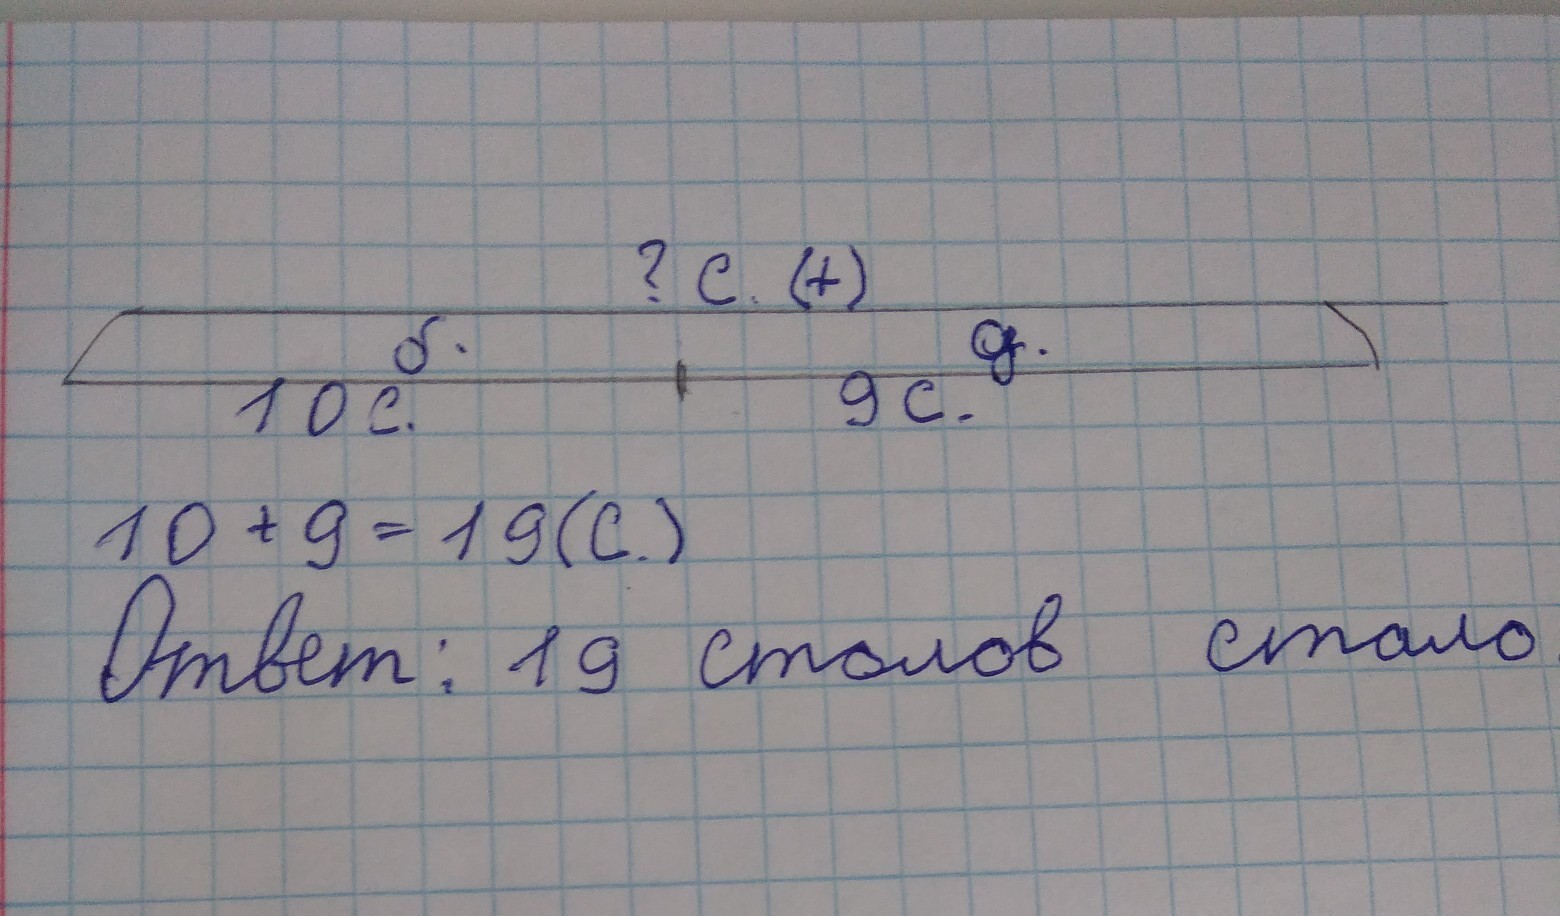 ? с. (+)
б. д.
10с. 9с.
10+9=19(с.)
Ответ: 19 столов стало.